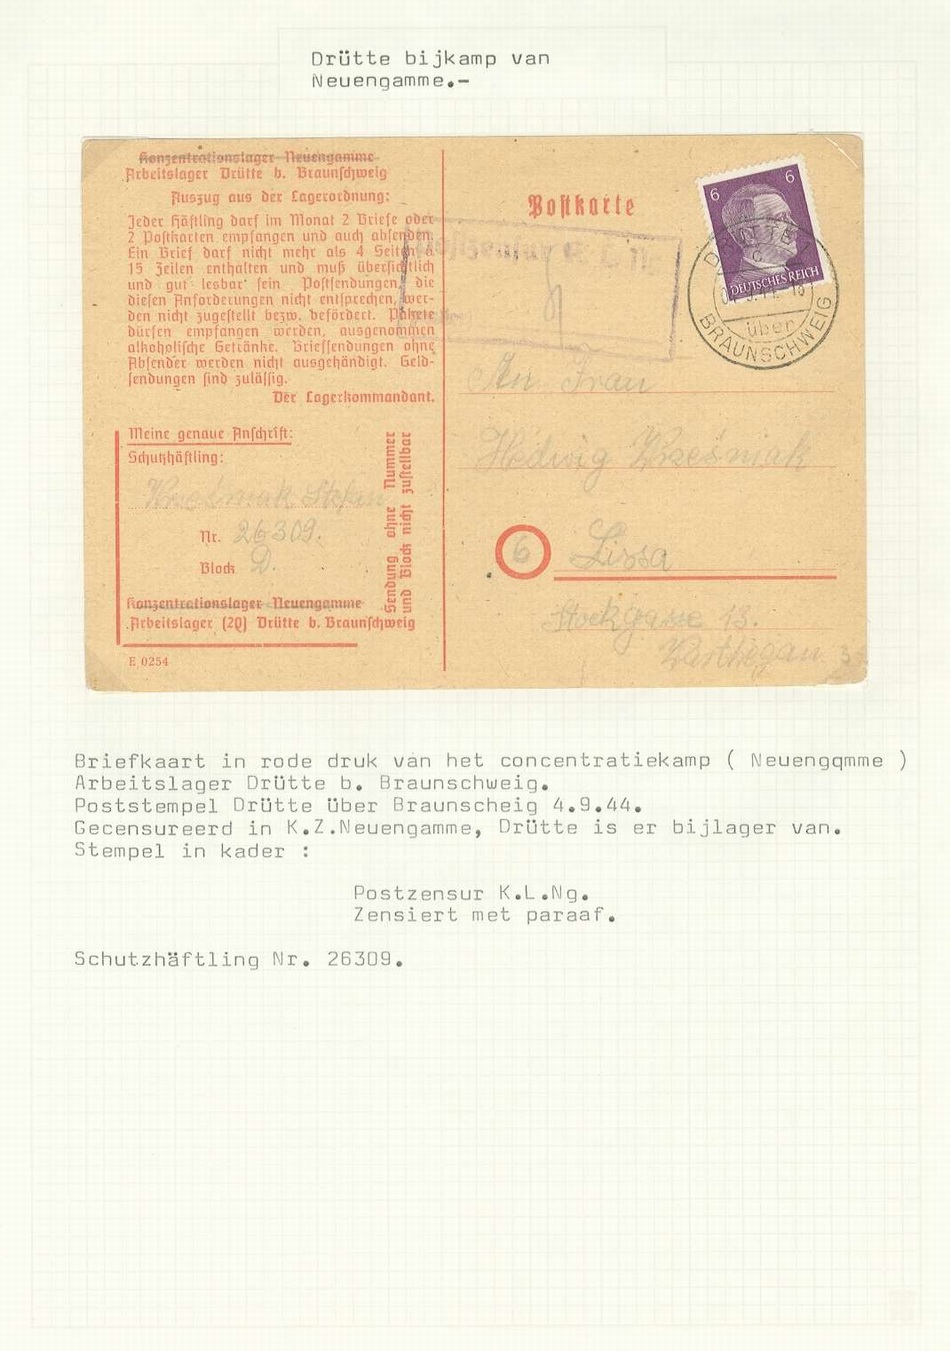 Drütte bijkamp van
Neuengamme.-
Konzentrationslager Neuengamme
Arbeitslager Drütte b. Braunschweig
Auszug aus der Lagerordnung:
Jeder Häftling darf im Monat 2 Briefe oder
2 Postkarten empfangen und auch absenden.
Ein Brief darf nicht mehr als 4 Seiten à
15 Zeilen enthalten und muß übersichtlich
und gut lesbar sein. Postsendungen, die
diesen Anforderungen nicht entsprechen, wer-
den nicht zugestellt bezw. befördert. Pakete
dürfen empfangen werden, ausgenommen
alkoholische Getränke. Briefsendungen ohne
Absender werden nicht ausgehändigt. Geld-
sendungen sind zulässig.
Der Lagerkommandant.
Meine genaue Anschrift:
Schutzhäftling:
Stefan
Nr. 26309.
Block D.
Konzentrationslager Neuengamme
Arbeitslager (20) Drütte b. Braunschweig
E 0254
Sendung ohne Nummer
und Block nicht zustellbar
Postkarte
Postzensur K. L. N.
6 6
DEUTSCHES REICH
DRÜTTE
über
BRAUNSCHWEIG
An Frau
Hedwig Wrześniak
6 Lissa
Stockgasse 13.
Warthegau
Briefkaart in rode druk van het concentratiekamp ( Neuengqmme )
Arbeitslager Drütte b. Braunschweig.
Poststempel Drütte über Braunscheig 4.9.44.
Gecensureerd in K.Z.Neuengamme, Drütte is er bijlager van.
Stempel in kader :
Postzensur K.L.Ng.
Zensiert met paraaf.
Schutzhäftling Nr. 26309.